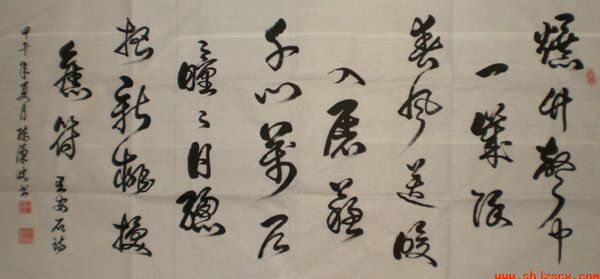 爆竹聲中
一歲除
春風送暖
入屠蘇
千門萬戶
曈々日總
把新桃換
舊符 王安石詩
甲午年夏月 陳 書